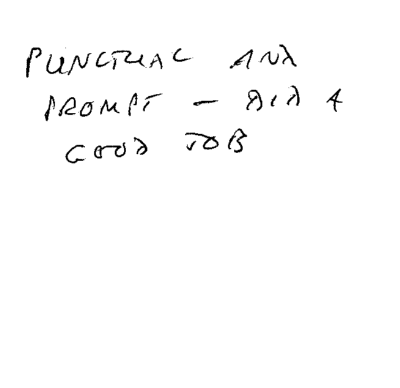 PUNCTUAL AND
PROMPT – DID A
GOOD JOB